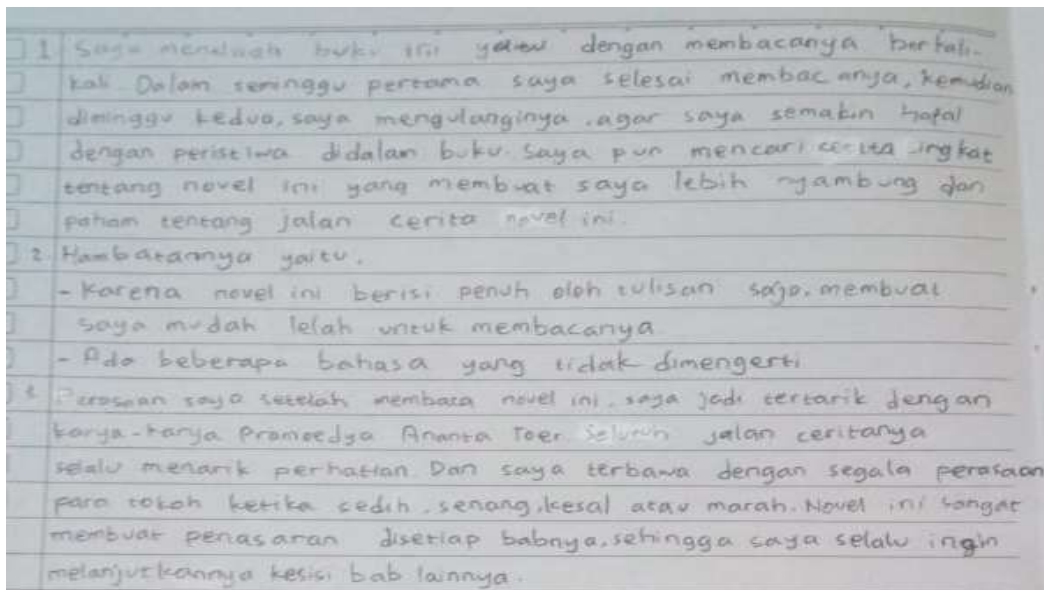 1 Saya menelaah buku ini yaitu dengan membacanya berkali-
kali. Dalam seminggu pertama saya selesai membacanya, kemudian
diminggu kedua, saya mengulanginya. agar saya semakin hafal
dengan peristiwa didalam buku. Saya pun mencari cerita singkat
tentang novel ini yang membuat saya lebih nyambung dan
paham tentang jalan cerita novel ini.
2 Hambatannya yaitu.
- Karena novel ini berisi penuh oleh tulisan saja. membuat
saya mudah lelah untuk membacanya
- Ada beberapa bahasa yang tidak dimengerti
Perasaan saya setelah membaca novel ini, saya jadi tertarik dengan
karya-karya Pramoedya Ananta Toer. Seluruh jalan ceritanya
selalu menarik perhatian. Dan saya terbawa dengan segala perasaan
para tokoh ketika sedih, senang, kesal atau marah. Novel ini sangat
membuat penasaran disetiap babnya, sehingga saya selalu ingin
melanjutkannya kesisi bab lainnya.